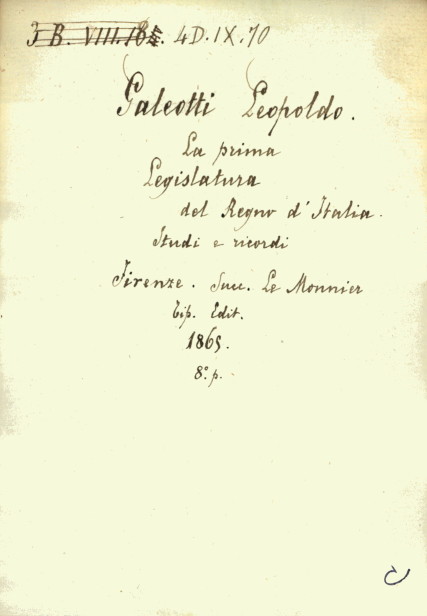 3 B. VIII. 185. 4D.IX.70
Galeotti Leopoldo.
La prima
Legislatura
del Regno d'Italia.
Studi e ricordi
Firenze. Succ. Le Monnier
Tip. Edit.
1865.
8.° p.